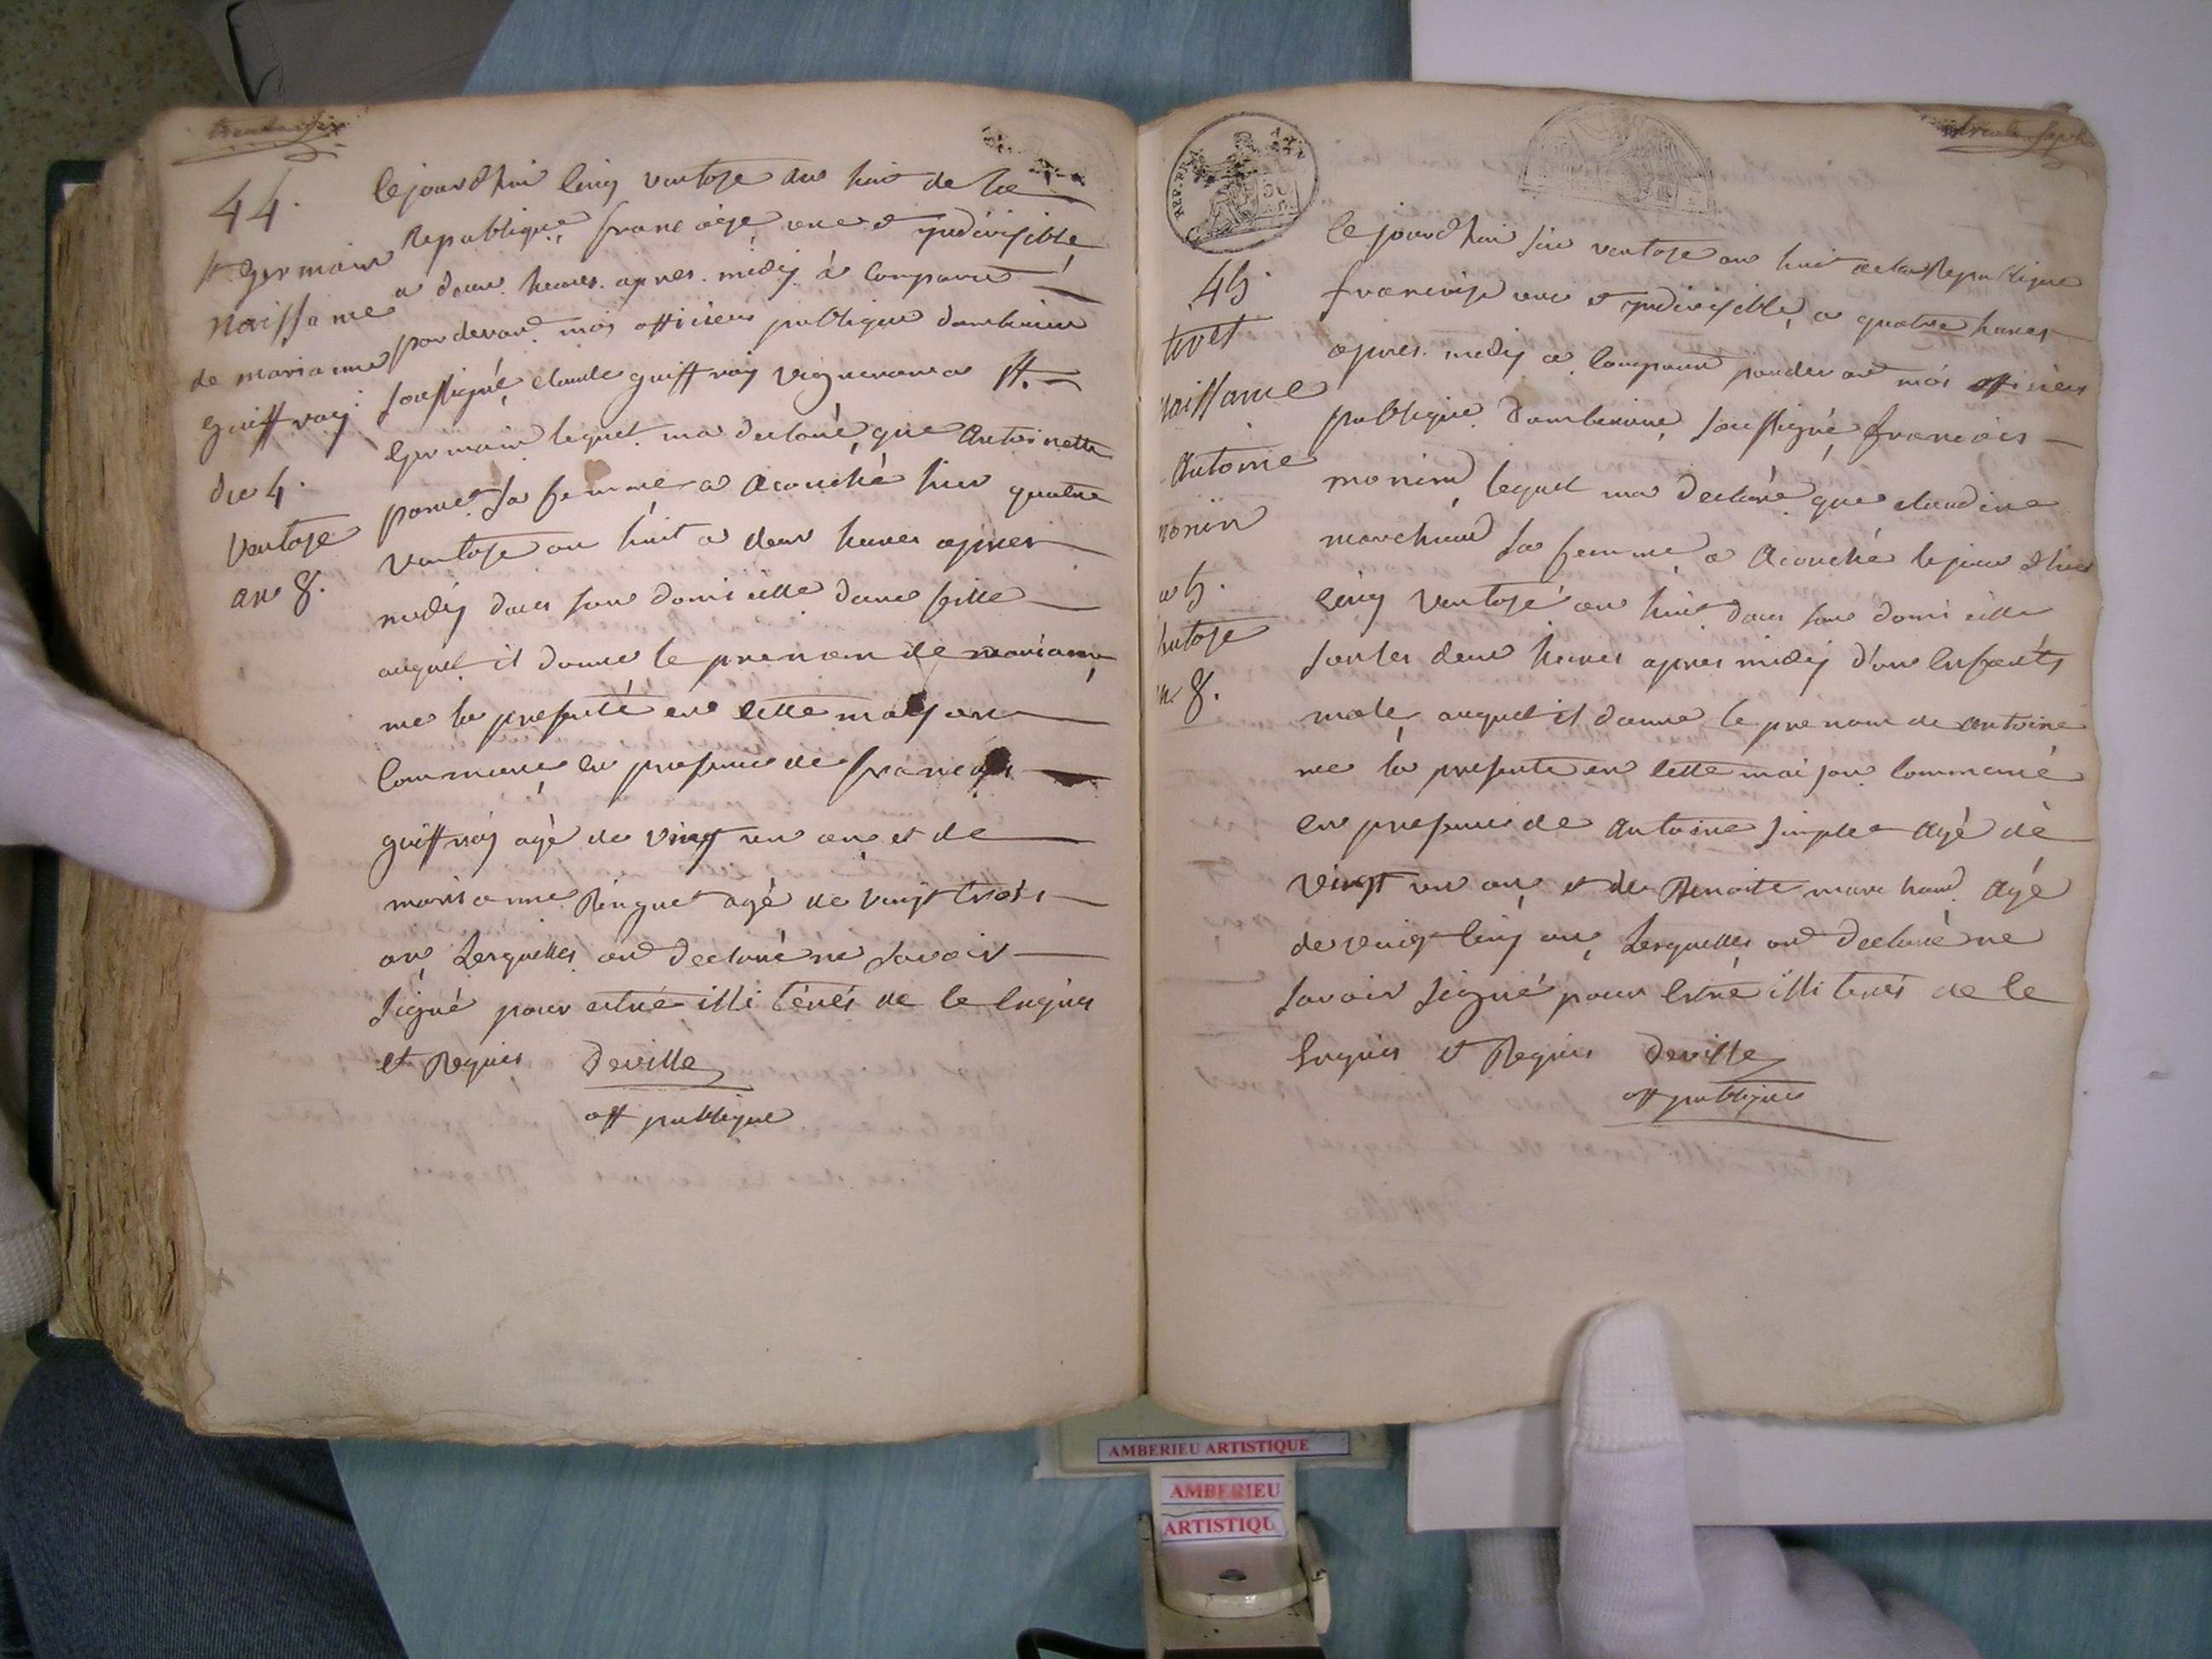 trente six
44.
St Germain
Naissance
de marianne
guiffray
du 4.
Ventose
an 8.
le jourdhui cinq ventose an huit de la
Republique francaise une et yndivisible
a deux heures apres midy à comparut
pardevant moi officier publique dambérieu
soussigné claude guiffray vigneron a St
Germain lequel ma declaré que Antoinette
sa femme a acouché hier quatre
ventose an huit a deux heures apres
midy dans son domicille dune fille
auquel il donne le prenom de marianne
me la presenté en cette maison
commune en presence de francois
guiffray agé de vingt un an et de
marianne agé de vingt trois
an Lesquelles ont declaré ne savoir
signé pour estre illitérés de ce enquis
et Requis Deville
off publique
trente sept
REP. FRA
45.
tiret
naissance
Antoine
monin
5.
ventose
8.
le jourdhui six ventose an huit de la Republique
francaise une et yndivisible a quatre heures
apres midy a comparut pardevant moi officier
publique dambérieu soussigné francois
monin lequel ma declaré que claudine
marchand sa femme a acouché le jour dhier
cinq ventose an huit dans son domicille
sur les deux heures apres midy d'un enfants
male auquel il donne le prenom de antoine
me la presenté en cette maison commune
en presence de antoine simple agé de
vingt un an et de Benoite marchand agé
de vingt cinq an Lesquelles ont declaré ne
savoir signé pour estre illiterés de ce
enquis et Requis Deville
off publique
AMBERIEU ARTISTIQUE
AMBERIEU
ARTISTIQU